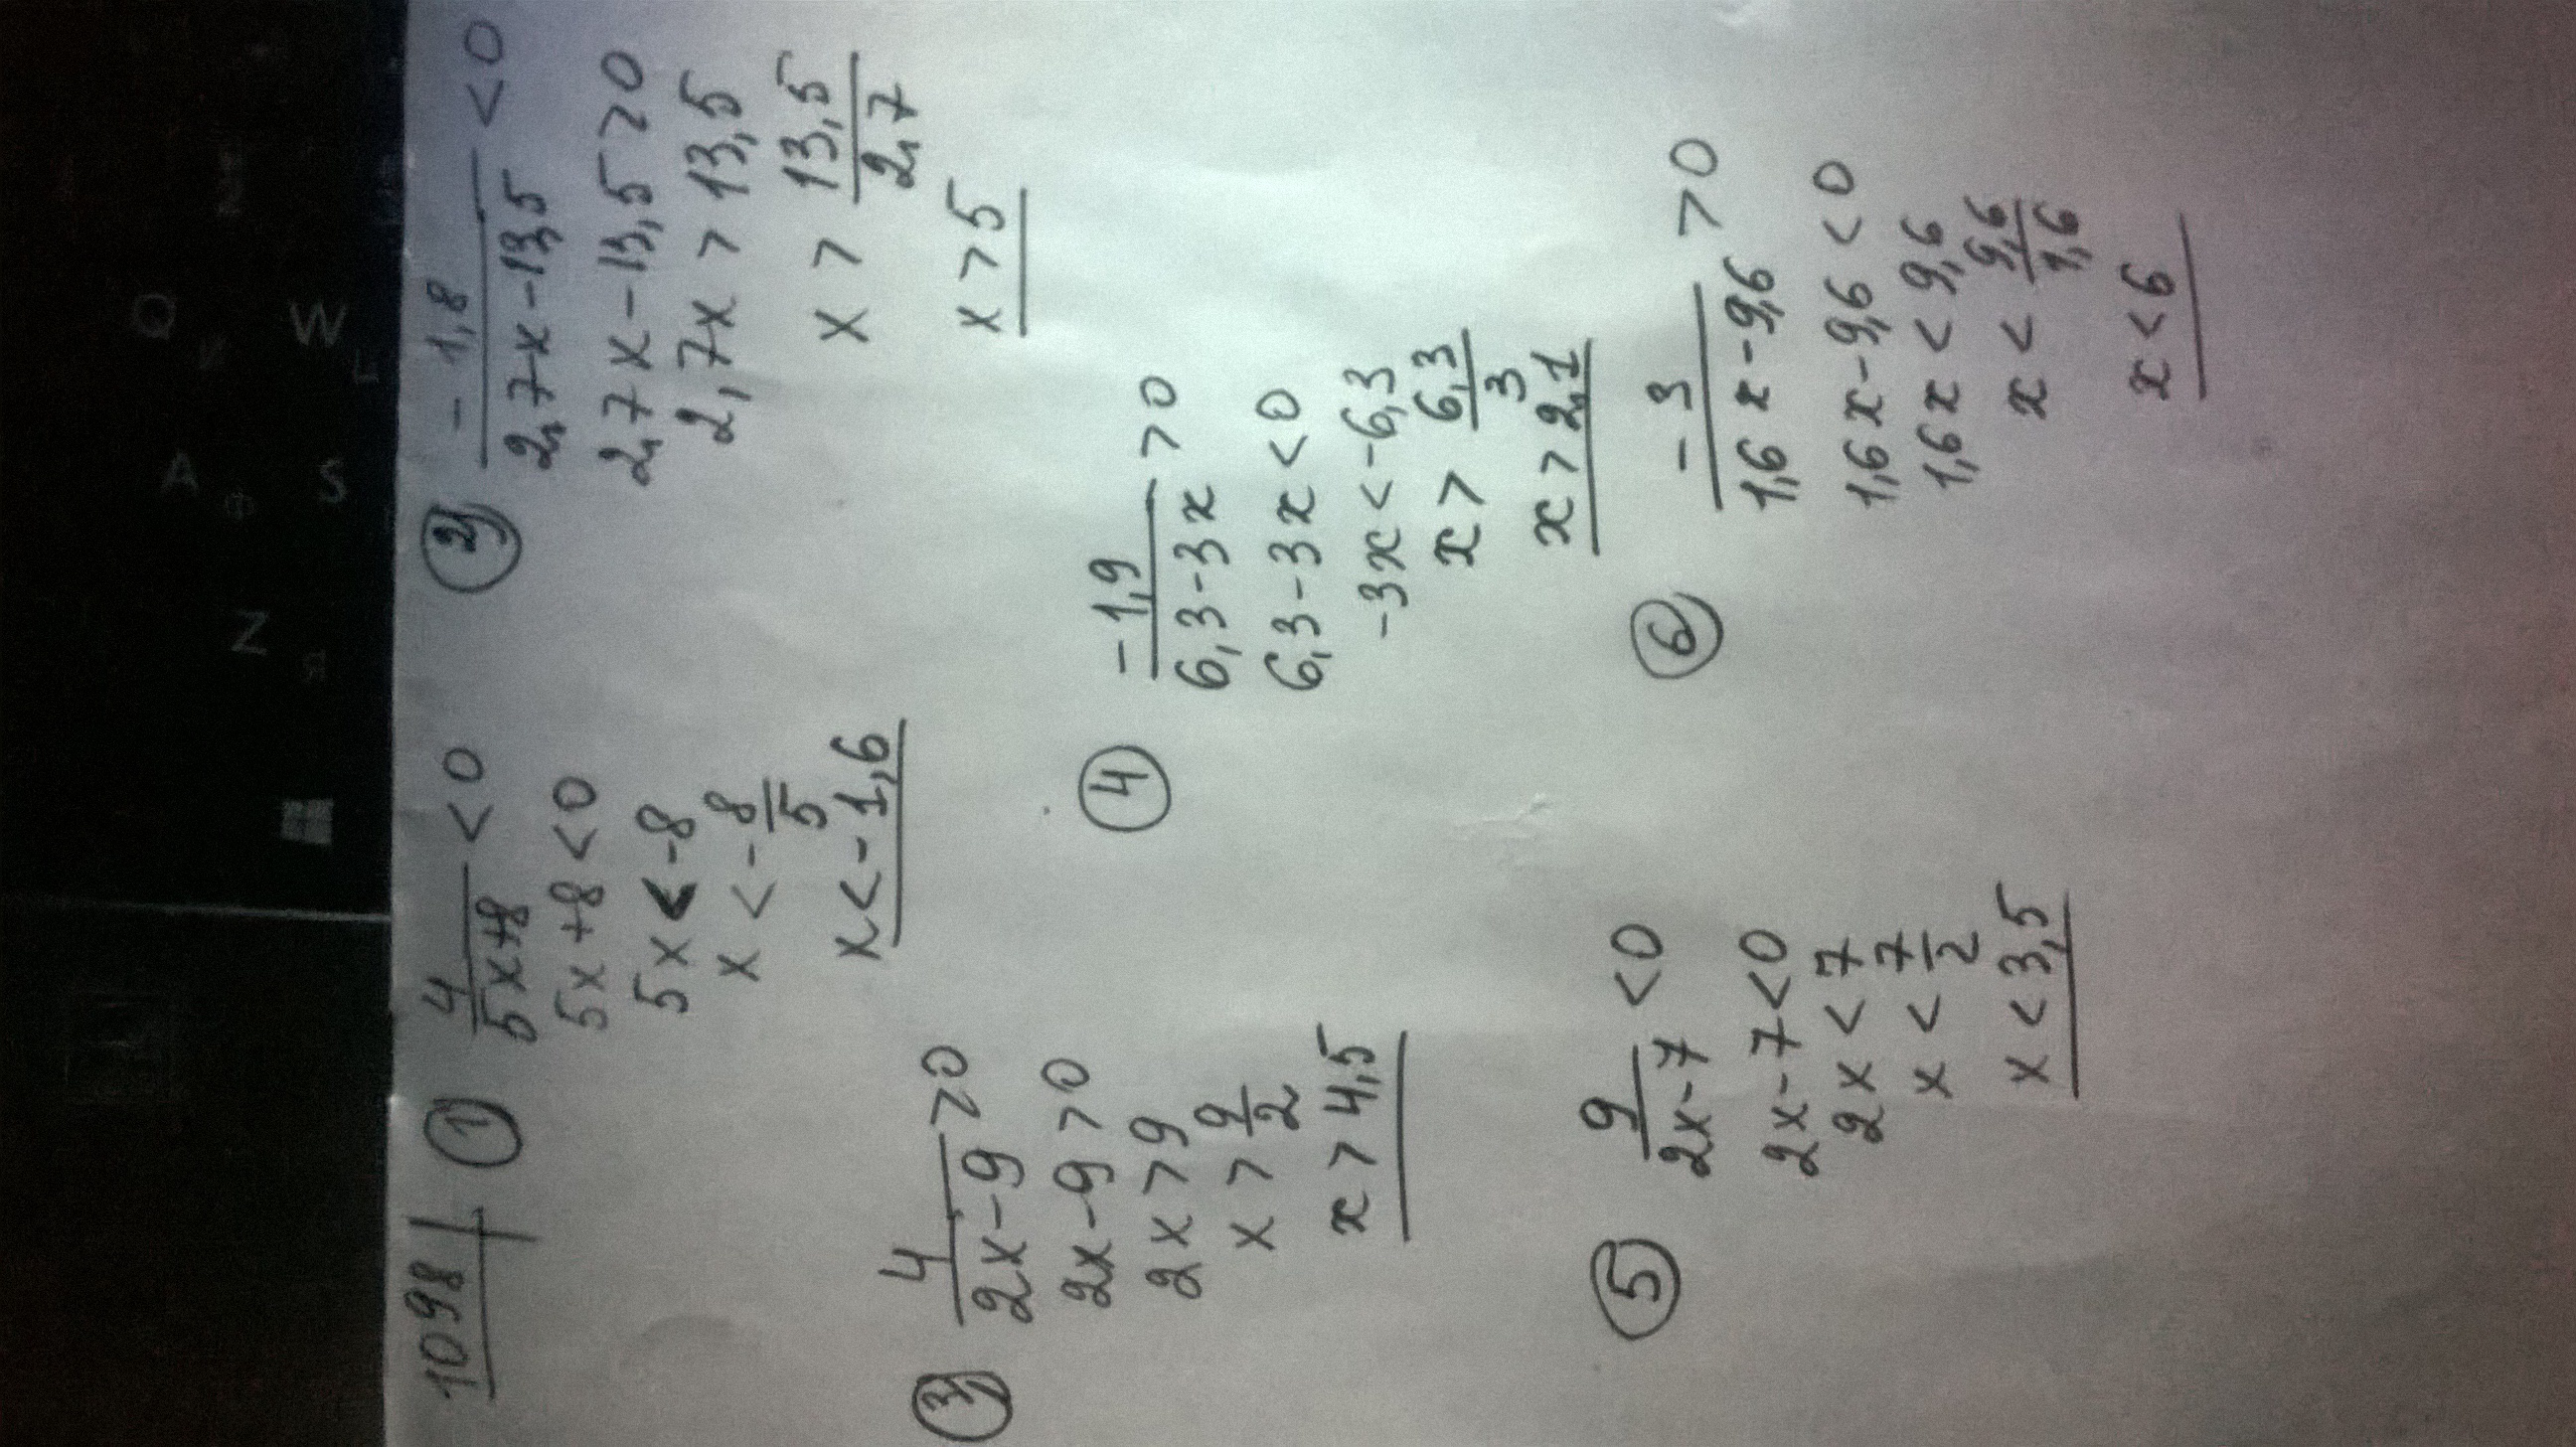 1098
① 4/(5x+8) < 0
5x+8 < 0
5x < -8
x < -8/5
x < -1,6
② -1,8/(2,7x-13,5) < 0
2,7x-13,5 > 0
2,7x > 13,5
x > 13,5/2,7
x > 5
③ 4/(2x-9) > 0
2x-9 > 0
2x > 9
x > 9/2
x > 4,5
④ -1,9/(6,3-3x) > 0
6,3-3x < 0
-3x < -6,3
x > 6,3/3
x > 2,1
⑤ 9/(2x-7) < 0
2x-7 < 0
2x < 7
x < 7/2
x < 3,5
⑥ -3/(1,6x-9,6) > 0
1,6x-9,6 < 0
1,6x < 9,6
x < 9,6/1,6
x < 6
Q
W
A
Ф
S
Z
Я